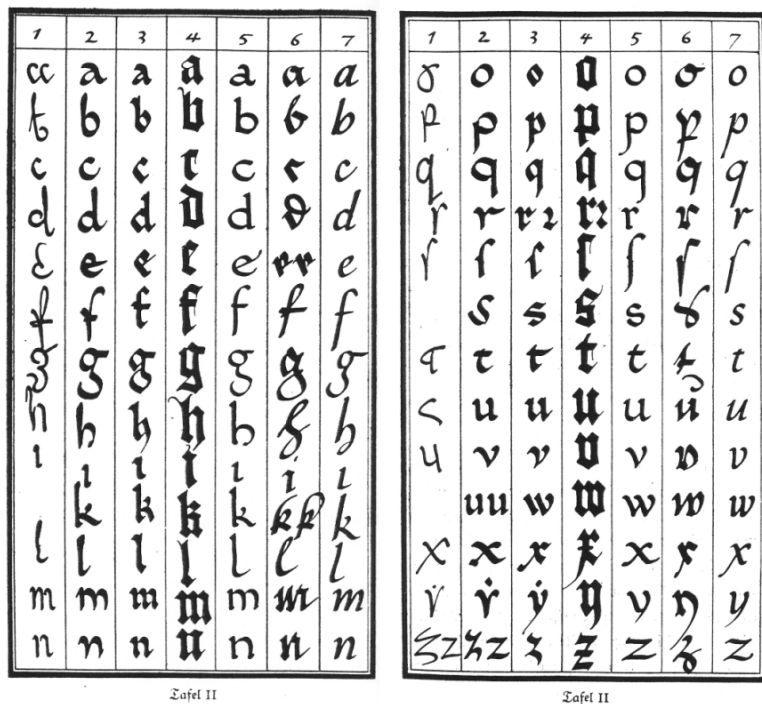 1 2 3 4 5 6 7
a a a a a a a
b b b b b b b
c c c c c c c
d d d d d d d
e e e e e e e e
f f f f f f f
g g g g g g g
h h h h h h h
ı ı ı i ı i ı
k k k k k k k
l l l l l l l
m m m m m m m
n n n n n n n
Tafel II
1 2 3 4 5 6 7
o o o o o o o
p p p p p p p
q q q q q q q
r r r ꝛ r ꝛ r r r
ſ ſ ſ ſ ſ ſ ſ
s s s s s s
t t t t t t t
u u u u ů u
u v v v v v v
uu w w w w w
x x x x x x x
ẏ ẏ ẏ y y y y
z z z z z z z z z
Tafel II